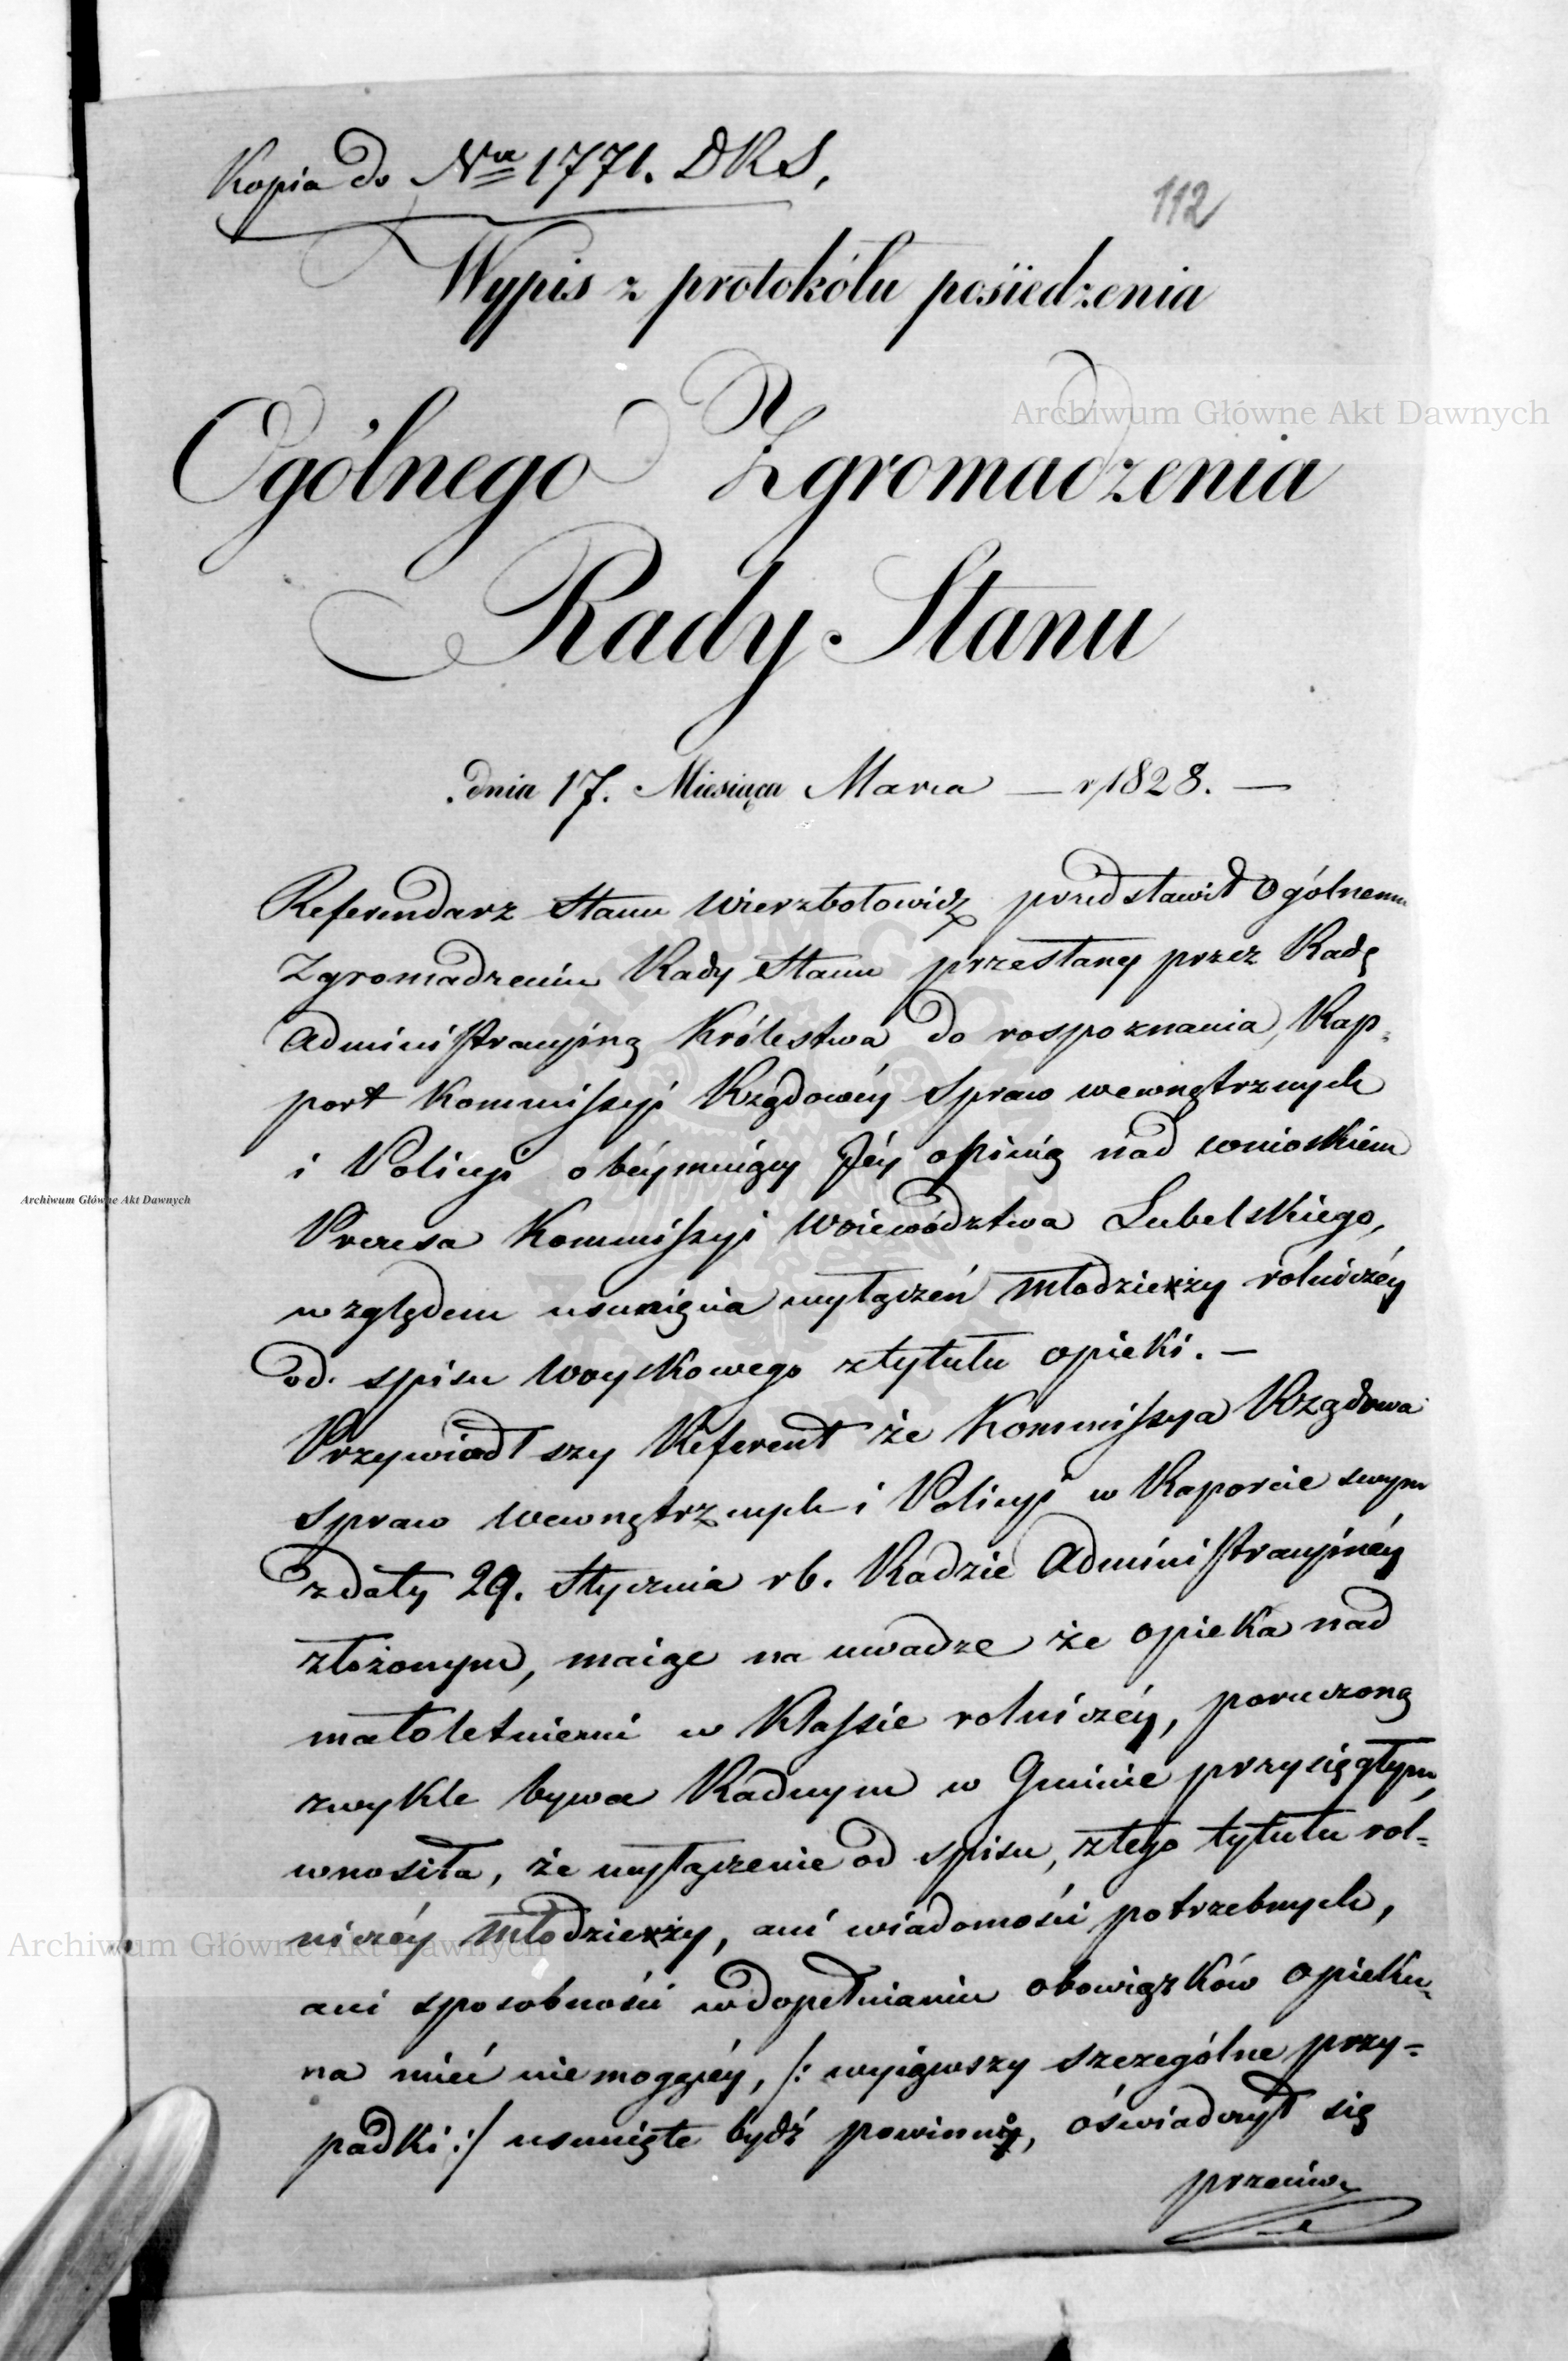 Kopia do Nru 1771. DRS,
112
Wypis z protokółu posiedzenia
Ogólnego Zgromadzenia
Rady Stanu
dnia 17. Miesiąca Marca — r 1828. —
Referendarz Stanu Wierzbołowicz przedstawił Ogólnemu
Zgromadzeniu Rady Stanu przesłany przez Radę
Administracyiną Królestwa do rospoznania, Rap-
port Kommissyi Rządowéy Spraw wewnętrznych
i Policyi obéymuiący Jéy opinią nad wnioskiem
Prezesa Kommissyi Woiewództwa Lubelskiego,
względem usunięcia wyłączeń młodzieży rolniczéy
od spisu Woyskowego z tytułu opieki. —
Przywiodłszy Referent że Kommissya Rządowa
Spraw Wewnętrznych i Policyi w Raporcie swym
z daty 29. Stycznia r b. Radzie Administracyinéy
złożonym, maiąc na uwadze że opieka nad
małoletniemi w Klassie rolniczéy, poruczoną
zwykle bywa Radnym w Gminie przysięgłym,
wnosiła, że wyłączenie od spisu, z tego tytułu rol-
niczéy młodzieży, ani wiadomości potrzebnych,
ani sposobności w dopełnianiu obowiązków opieku-
na mieć niemogącéy, /: wyiąwszy szczególne przy-
padki :/ usunięte bydź powinno, oświadczył się
przeciw
Archiwum Główne Akt Dawnych
Archiwum Główne Akt Dawnych
Archiwum Główne Akt Dawnych